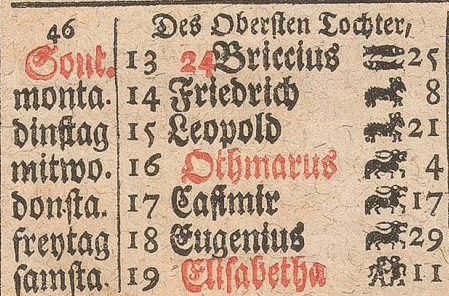 46 Des Obersten Tochter,
Sont. 13 24 Briccius 25
monta. 14 Friedrich 8
dinstag 15 Leopold 21
mitwo. 16 Othmarus 4
donsta. 17 Casimir 17
freytag 18 Eugenius 29
samsta. 19 Elisabetha 11